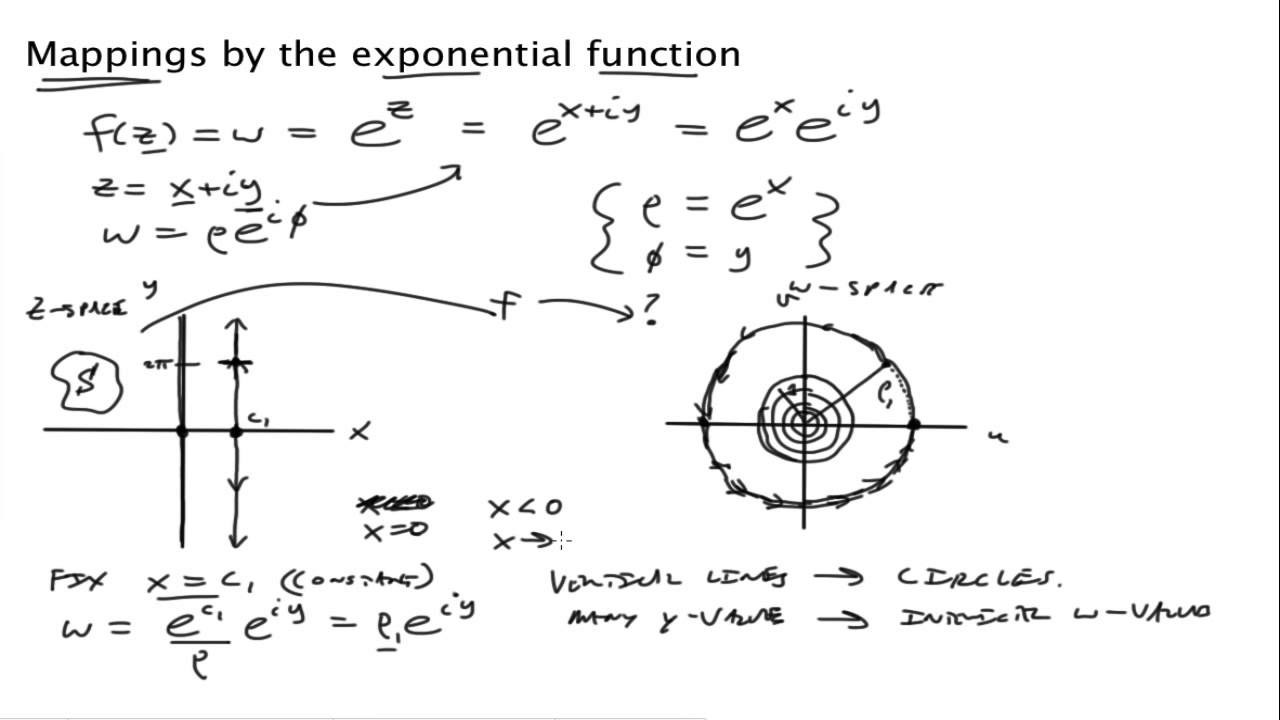 Mappings by the exponential function
f(z) = w = e^z = e^{x+iy} = e^x e^{iy}
z = x+iy
w = ρe^{iφ}
{ ρ = e^x
φ = y }
z-SPACE y
f → ?
v w-SPACE
S
2π
c₁
x
ρ₁
u
x=0
x<0
x→
FIX x = c₁ (CONSTANT)
w = e^{c₁} e^{iy} = ρ₁e^{iy}
ρ
VERTICAL LINES → CIRCLES.
MANY y-VALUE → w-VALUE